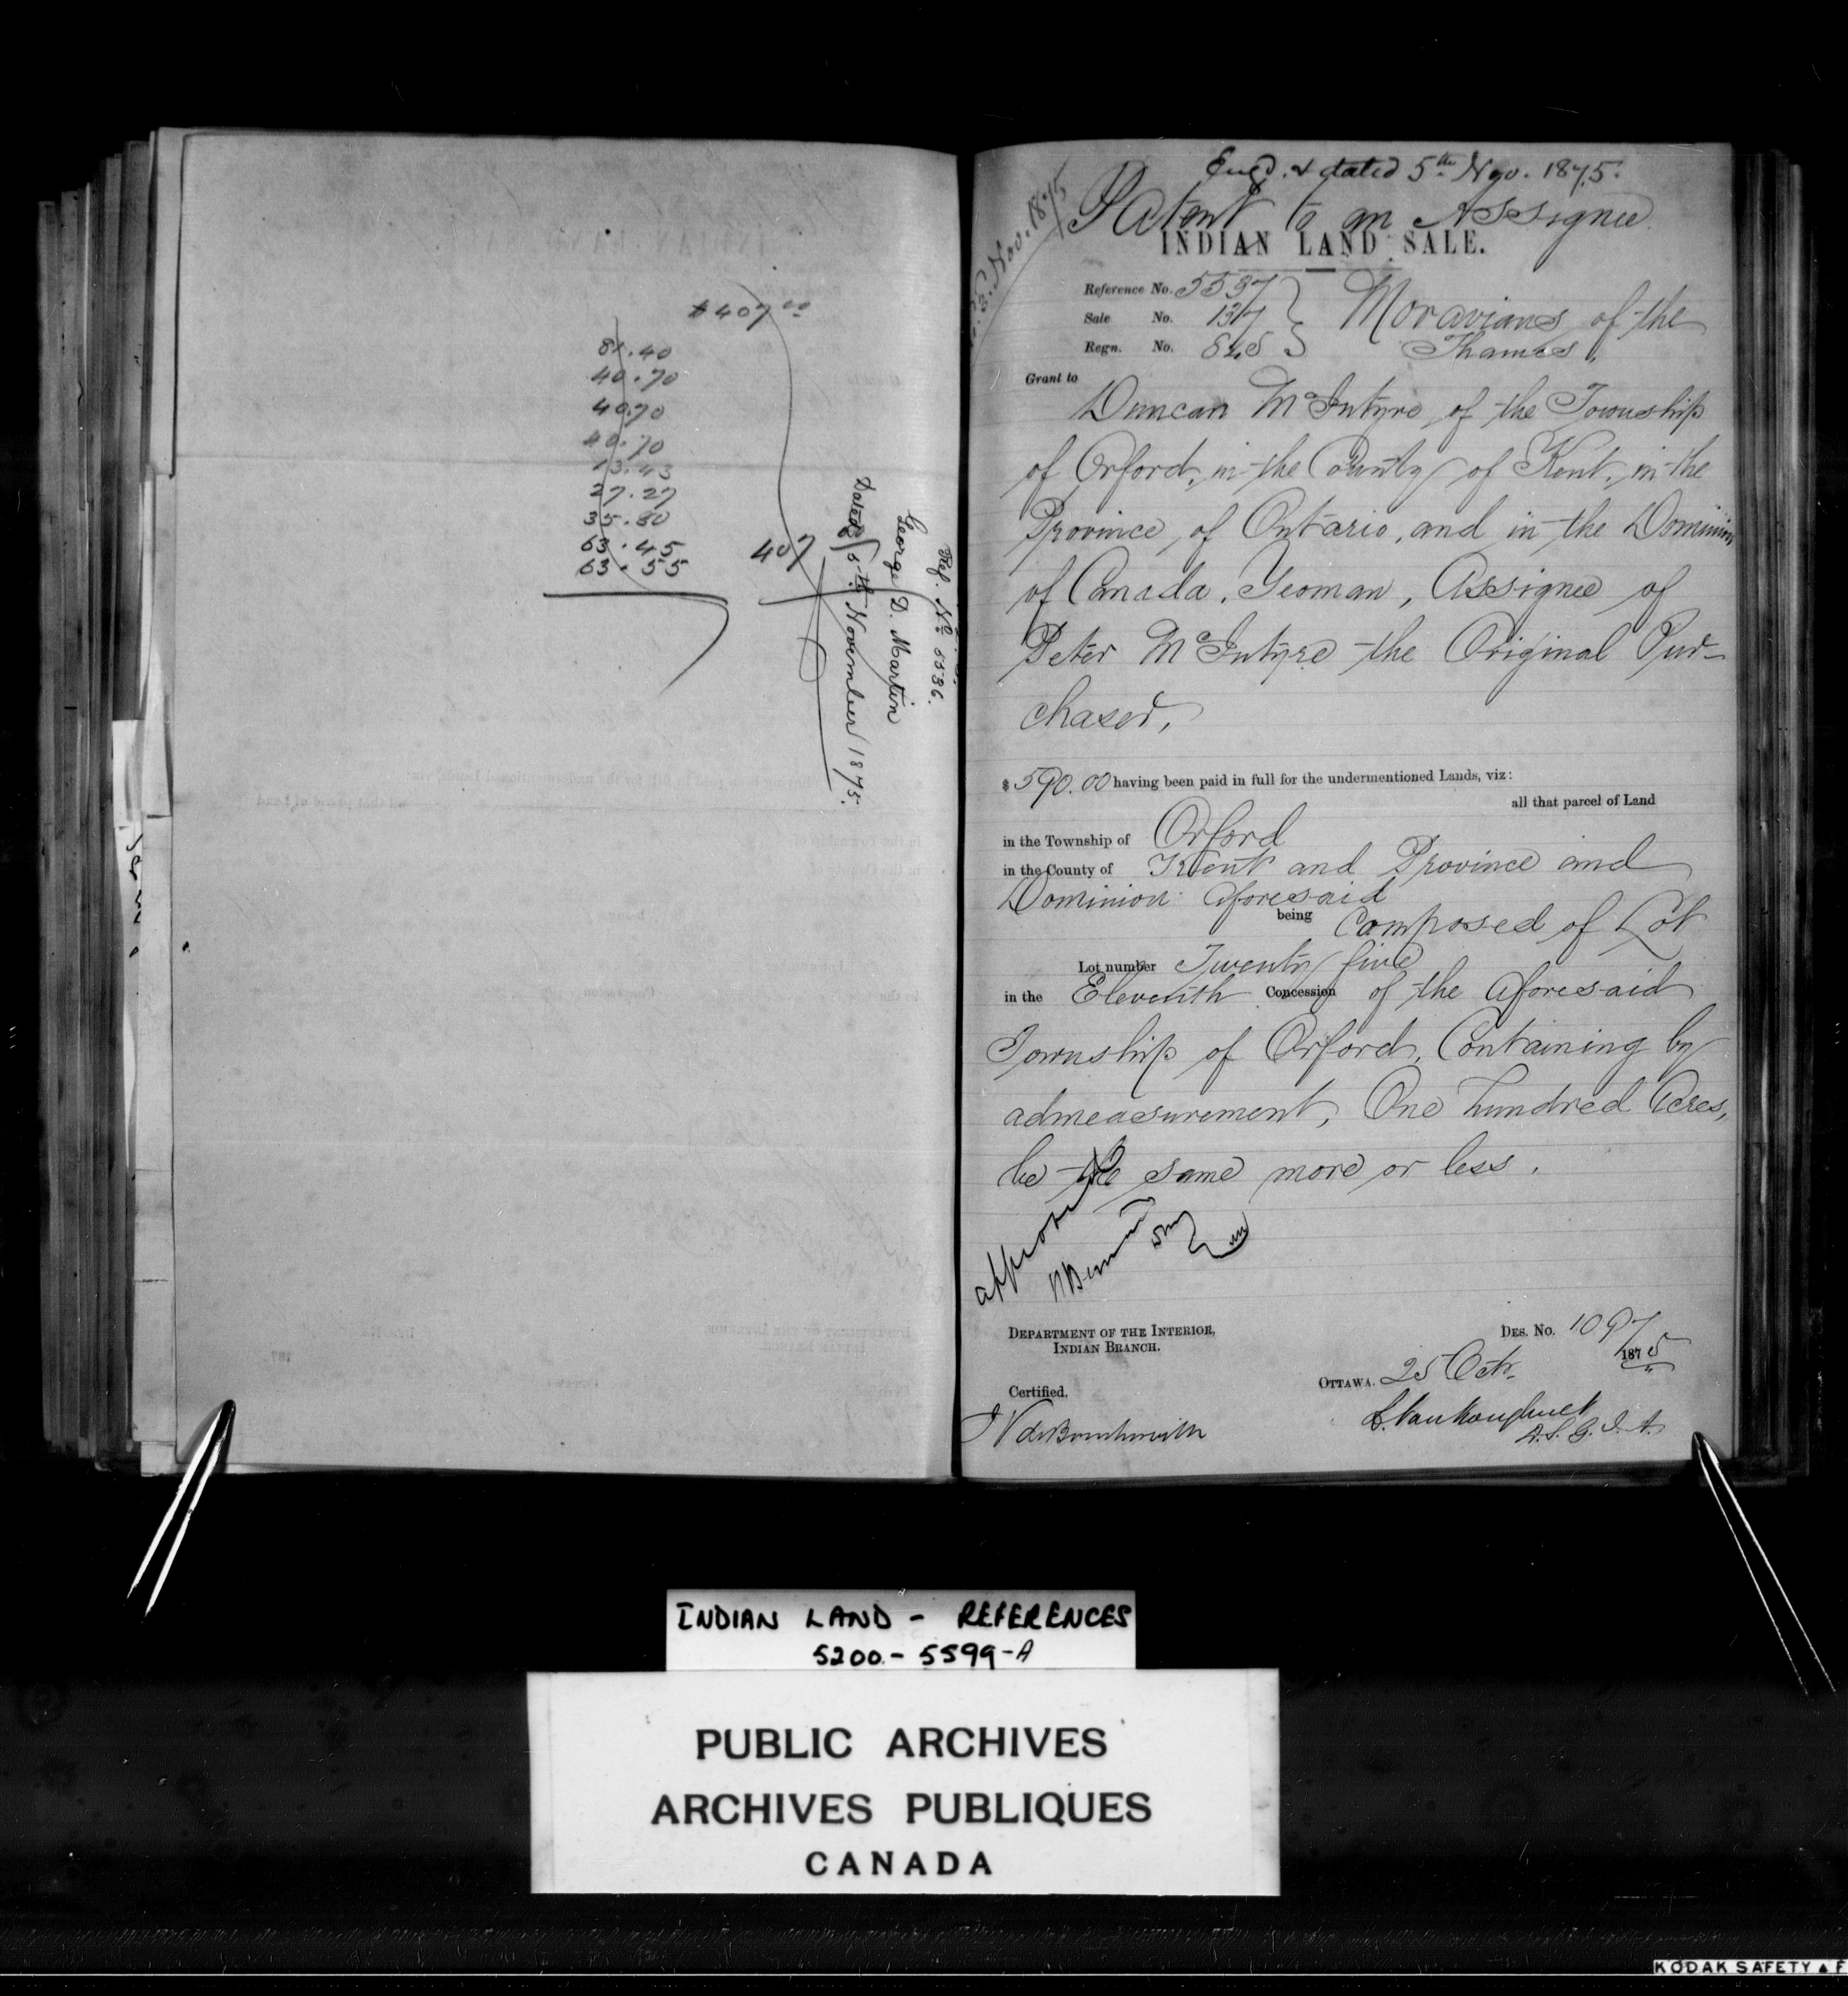 $407.00
81.40
40.70
40.70
40.70
13.43
27.27
35.80
63.45
63.55
407
Ref. No 5536.
George D. Martin
Dated 5th November 1875.
Engd. & dated 5th Nov. 1875.
Nov. 1875
Patent to an Assignee
INDIAN LAND SALE.
Reference No. 5537
Sale No. 137
Regn. No.
Moravians of the
Thames,
Grant to
Duncan McIntyre of the Township
of Orford, in the County of Kent, in the
Province of Ontario, and in the Dominion
of Canada, Yeoman, Assignee of
Peter McIntyre the Original Pur-
chaser,
$590.00 having been paid in full for the undermentioned Lands, viz:
all that parcel of Land
in the Township of Orford
in the County of Kent and Province and
Dominion aforesaid
being Composed of Lot
Lot number Twenty five
in the Eleventh Concession of the aforesaid
Township of Orford, Containing by
admeasurement, One hundred Acres,
be the same more or less.
approved
DEPARTMENT OF THE INTERIOR,
INDIAN BRANCH.
DES. No. 1097
OTTAWA. 25 Octr. 1875
Certified,
L. Vankoughnet
D.S.G.I.A.
INDIAN LAND - REFERENCES
5200 - 5599-A
PUBLIC ARCHIVES
ARCHIVES PUBLIQUES
CANADA
KODAK SAFETY ▲ F